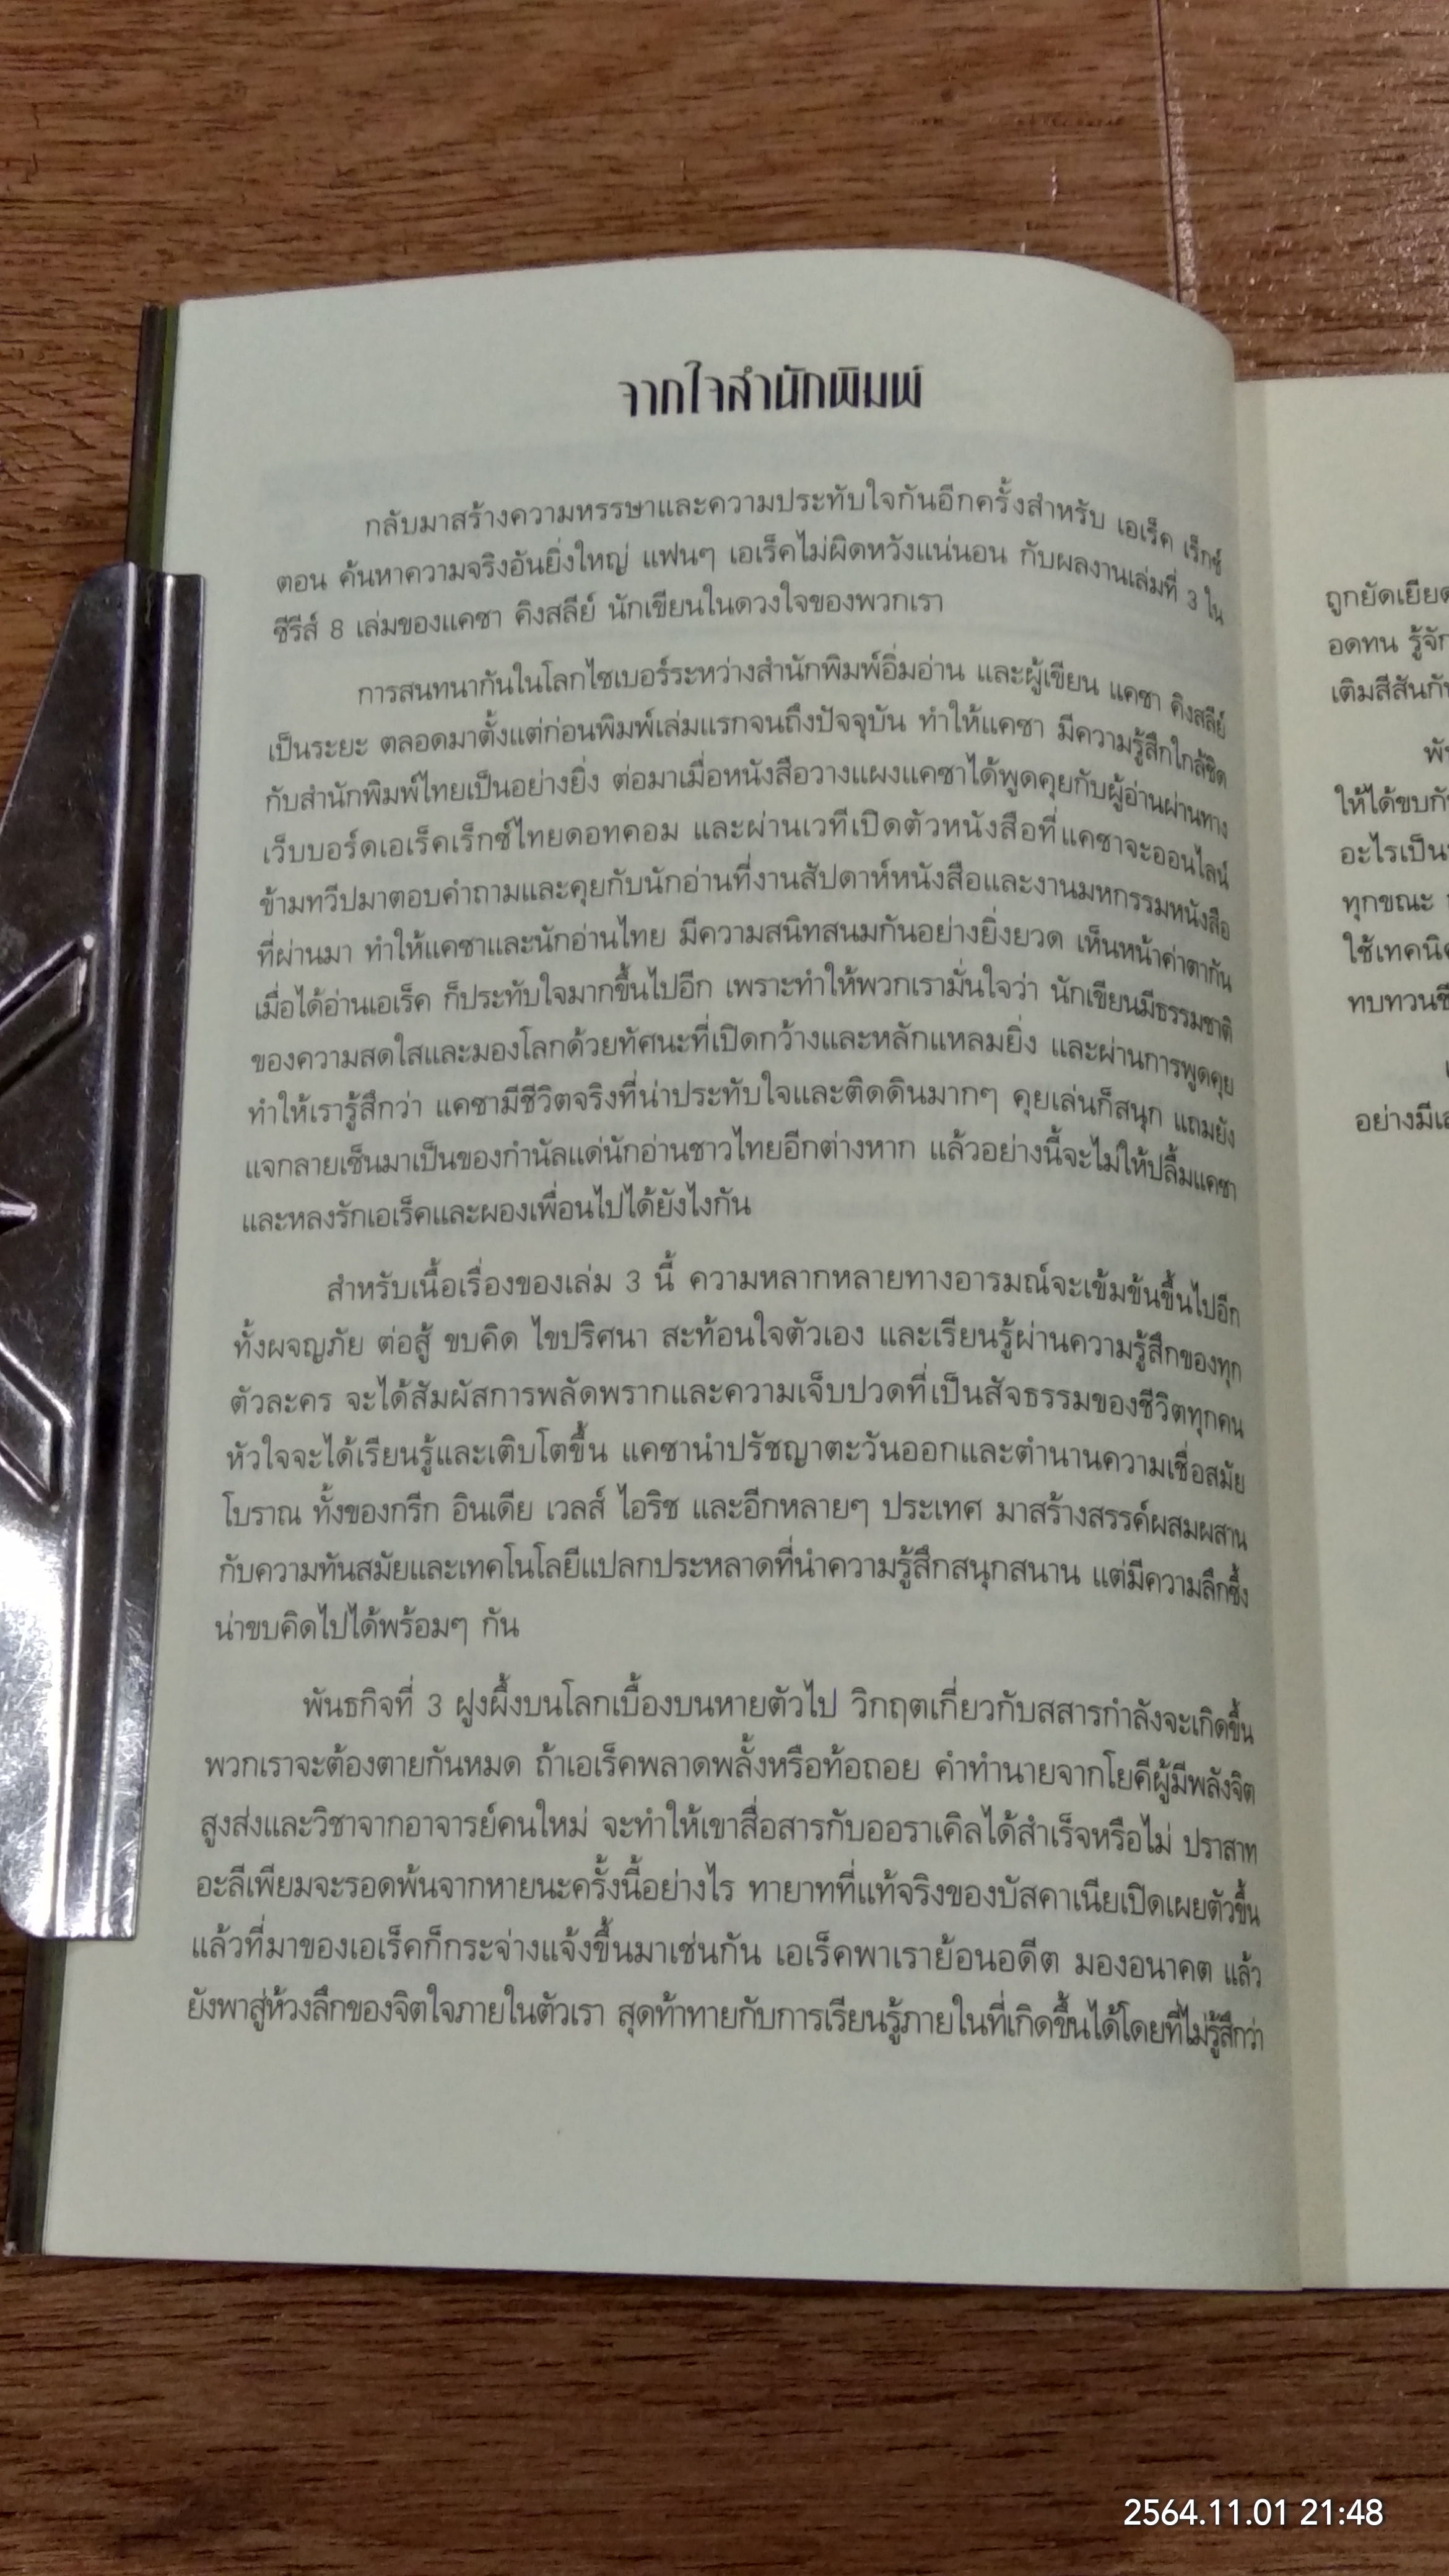 จากใจสำนักพิมพ์
กลับมาสร้างความหรรษาและความประทับใจกันอีกครั้งสำหรับ เอเร็ค เร็กซ์
ตอน ค้นหาความจริงอันยิ่งใหญ่ แฟนๆ เอเร็คไม่ผิดหวังแน่นอน กับผลงานเล่มที่ 3 ใน
ซีรีส์ 8 เล่มของแคซา คิงสลีย์ นักเขียนในดวงใจของพวกเรา
การสนทนากันในโลกไซเบอร์ระหว่างสำนักพิมพ์อิ่มอ่าน และผู้เขียน แคซา คิงสลีย์
เป็นระยะ ตลอดมาตั้งแต่ก่อนพิมพ์เล่มแรกจนถึงปัจจุบัน ทำให้แคซา มีความรู้สึกใกล้ชิด
กับสำนักพิมพ์ไทยเป็นอย่างยิ่ง ต่อมาเมื่อหนังสือวางแผงแคซาได้พูดคุยกับผู้อ่านผ่านทาง
เว็บบอร์ดเอเร็คเร็กซ์ไทยดอทคอม และผ่านเวทีเปิดตัวหนังสือที่แคซาจะออนไลน์
ข้ามทวีปมาตอบคำถามและคุยกับนักอ่านที่งานสัปดาห์หนังสือและงานมหกรรมหนังสือ
ที่ผ่านมา ทำให้แคซาและนักอ่านไทย มีความสนิทสนมกันอย่างยิ่งยวด เห็นหน้าค่าตากัน
เมื่อได้อ่านเอเร็ค ก็ประทับใจมากขึ้นไปอีก เพราะทำให้พวกเรามั่นใจว่า นักเขียนมีธรรมชาติ
ของความสดใสและมองโลกด้วยทัศนะที่เปิดกว้างและหลักแหลมยิ่ง และผ่านการพูดคุย
ทำให้เรารู้สึกว่า แคซามีชีวิตจริงที่น่าประทับใจและติดดินมากๆ คุยเล่นก็สนุก แถมยัง
แจกลายเซ็นมาเป็นของกำนัลแด่นักอ่านชาวไทยอีกต่างหาก แล้วอย่างนี้จะไม่ให้ปลื้มแคซา
และหลงรักเอเร็คและผองเพื่อนไปได้ยังไงกัน
สำหรับเนื้อเรื่องของเล่ม 3 นี้ ความหลากหลายทางอารมณ์จะเข้มข้นขึ้นไปอีก
ทั้งผจญภัย ต่อสู้ ขบคิด ไขปริศนา สะท้อนใจตัวเอง และเรียนรู้ผ่านความรู้สึกของทุก
ตัวละคร จะได้สัมผัสการพลัดพรากและความเจ็บปวดที่เป็นสัจธรรมของชีวิตทุกคน
หัวใจจะได้เรียนรู้และเติบโตขึ้น แคซานำปรัชญาตะวันออกและตำนานความเชื่อสมัย
โบราณ ทั้งของกรีก อินเดีย เวลส์ ไอริช และอีกหลายๆ ประเทศ มาสร้างสรรค์ผสมผสาน
กับความทันสมัยและเทคโนโลยีแปลกประหลาดที่นำความรู้สึกสนุกสนาน แต่มีความลึกซึ้ง
น่าขบคิดไปได้พร้อมๆ กัน
พันธกิจที่ 3 ฝูงผึ้งบนโลกเบื้องบนหายตัวไป วิกฤตเกี่ยวกับสสารกำลังจะเกิดขึ้น
พวกเราจะต้องตายกันหมด ถ้าเอเร็คพลาดพลั้งหรือท้อถอย คำทำนายจากโยคีผู้มีพลังจิต
สูงส่งและวิชาจากอาจารย์คนใหม่ จะทำให้เขาสื่อสารกับออราเคิลได้สำเร็จหรือไม่ ปราสาท
อะลีเพียมจะรอดพ้นจากหายนะครั้งนี้อย่างไร ทายาทที่แท้จริงของบัสคาเนียเปิดเผยตัวขึ้น
แล้วที่มาของเอเร็คก็กระจ่างแจ้งขึ้นมาเช่นกัน เอเร็คพาเราย้อนอดีต มองอนาคต แล้ว
ยังพาสู่ห้วงลึกของจิตใจภายในตัวเรา สุดท้าทายกับการเรียนรู้ภายในที่เกิดขึ้นได้โดยที่ไม่รู้สึกว่า
ถูกยัดเยียด
อดทน
เติมสีสัน
ให้ได้ขบ
อะไรเป็น
ทุกขณะ
ทบทวน
อย่างมี
2564.11.01 21:48